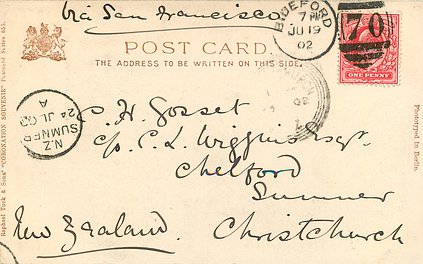 Via San Francisco
BIDEFORD
7 PM
JU 19
02
70
ONE PENNY
POST CARD.
(THE ADDRESS TO BE WRITTEN ON THIS SIDE.)
N.Z.
SUMNER
24 JL 02
A
C. H. Gosset
c/o. C. L. Wiggins Esqr.
Chelford
Sumner
Christchurch
New Zealand.
Raphael Tuck & Sons' "CORONATION SOUVENIR" Postcard Series
Phototyped in Berlin.